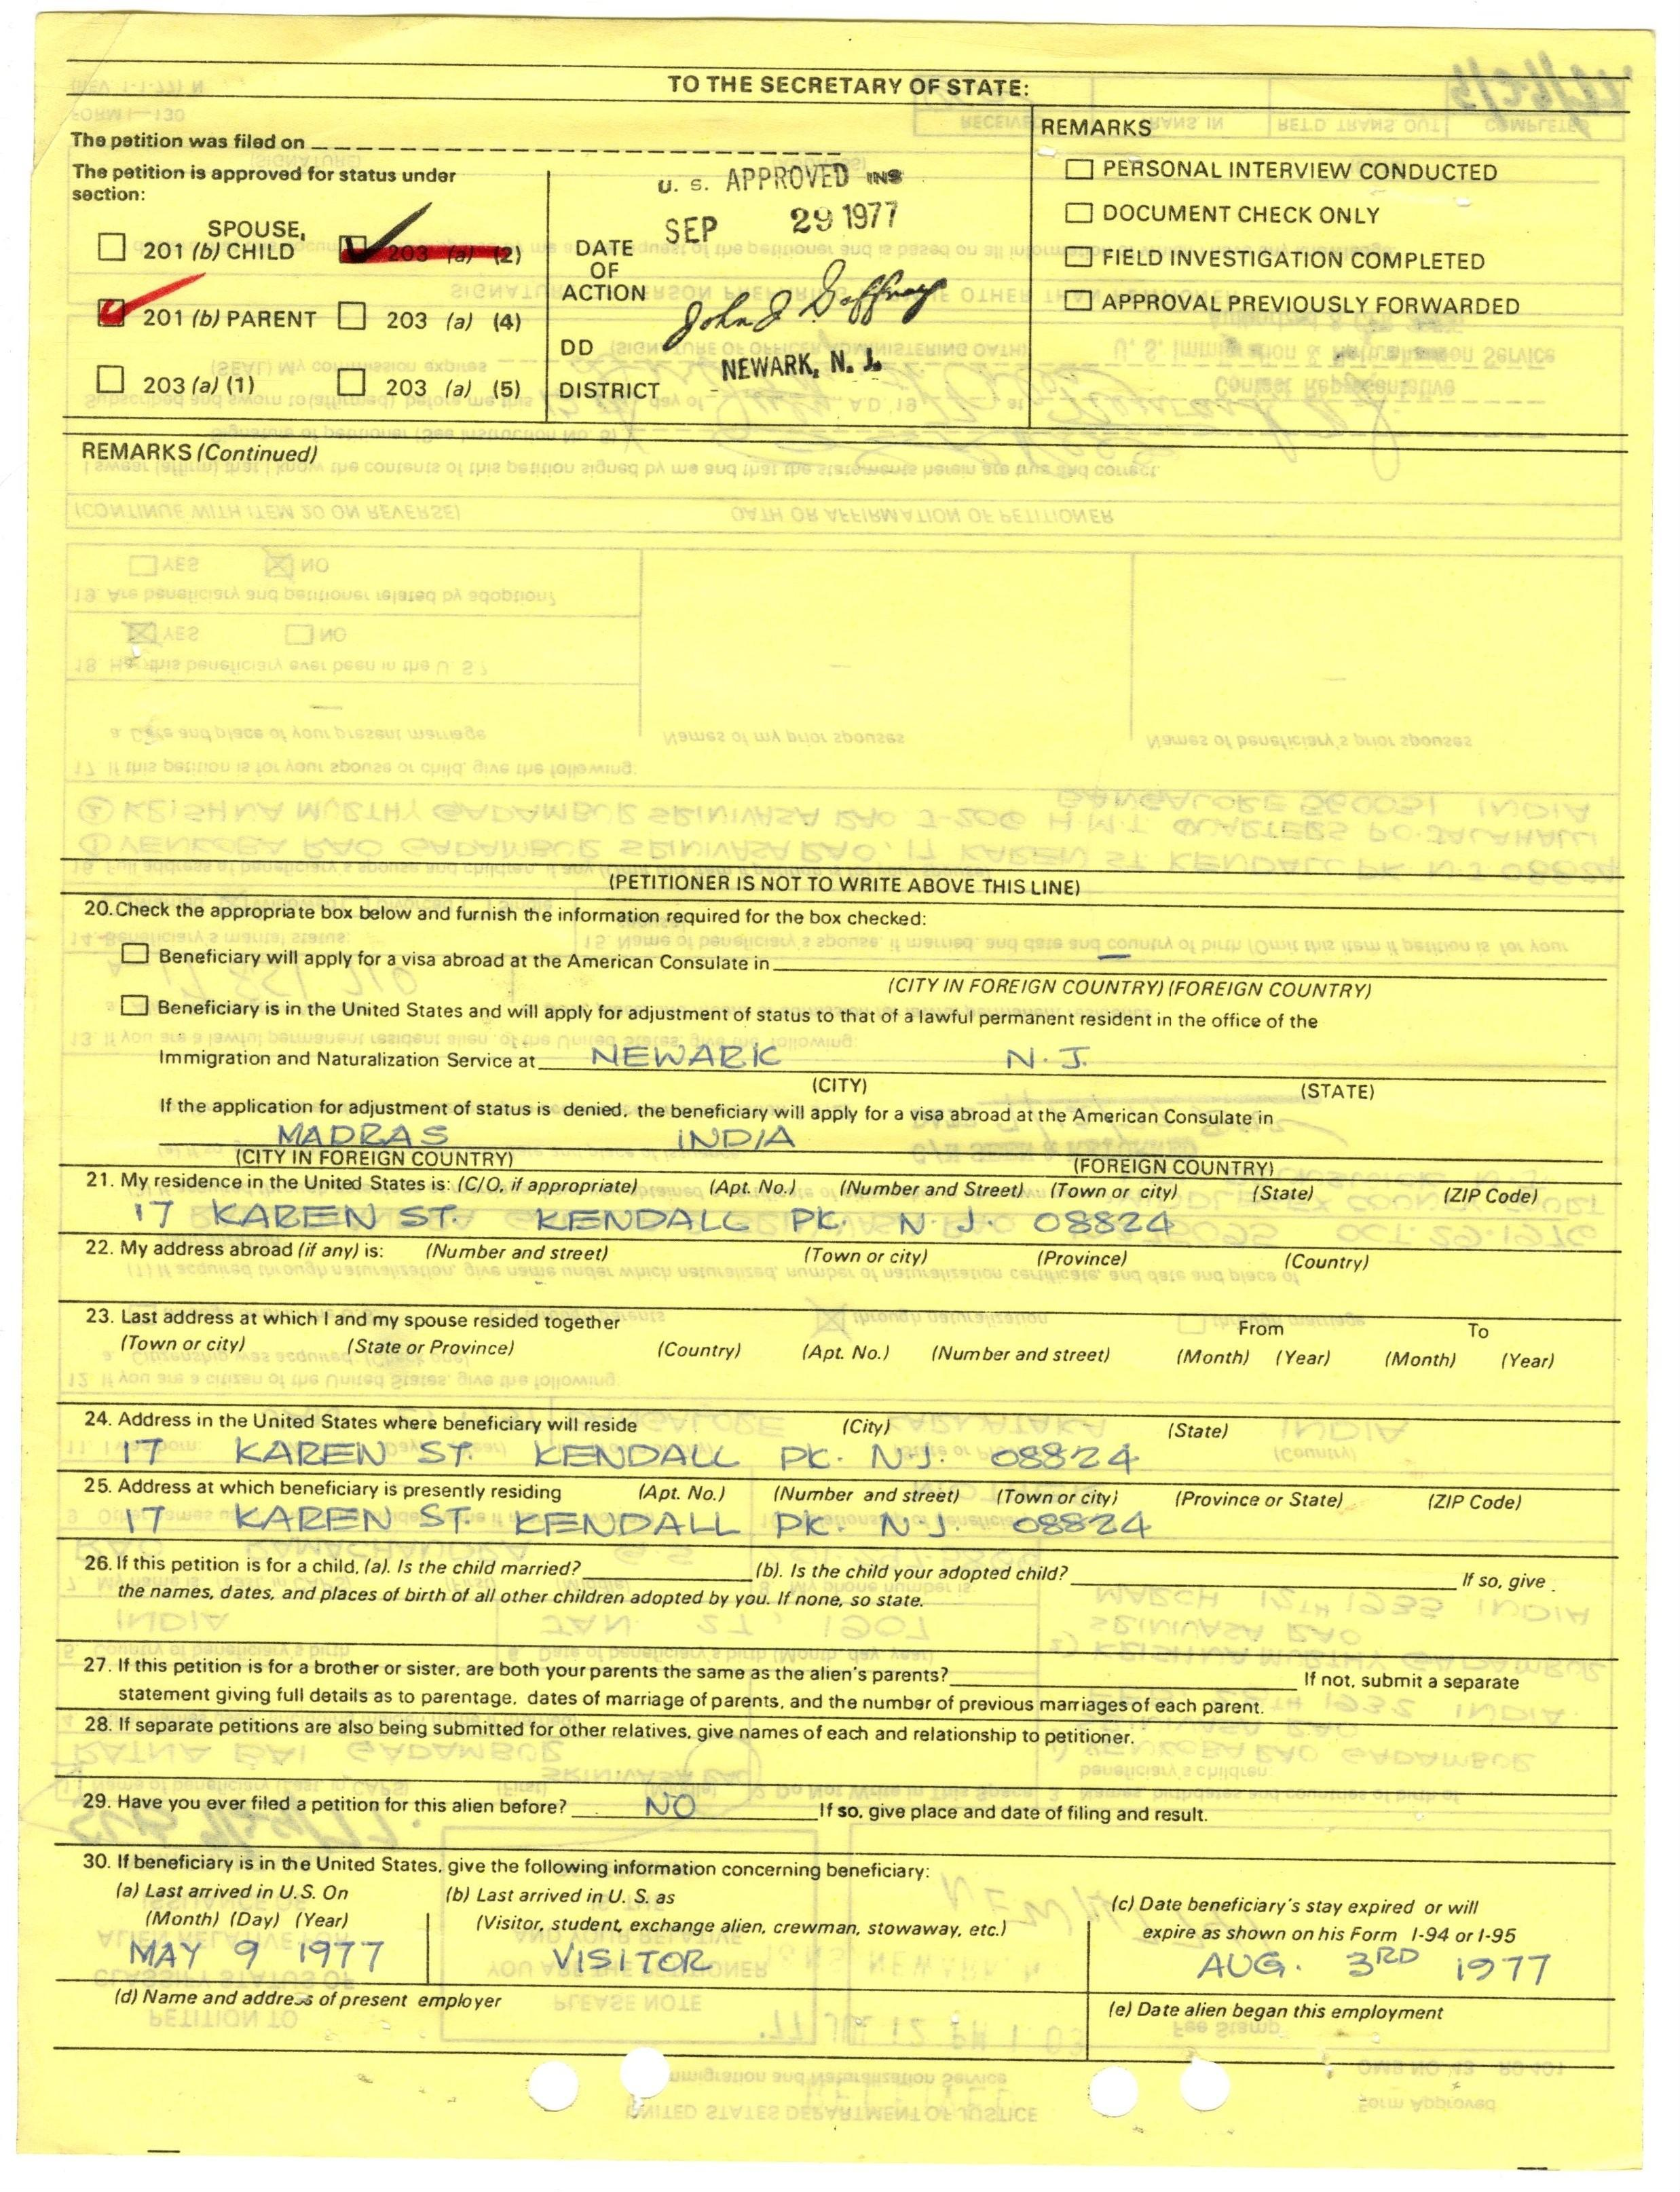 TO THE SECRETARY OF STATE:
The petition was filed on
The petition is approved for status under
section:
SPOUSE,
201 (b) CHILD
203 (a) (2)
201 (b) PARENT
203 (a) (4)
203 (a) (1)
203 (a) (5)
U. S. APPROVED INS
SEP 29 1977
DATE
OF
ACTION
DD
DISTRICT
NEWARK, N. J.
REMARKS
PERSONAL INTERVIEW CONDUCTED
DOCUMENT CHECK ONLY
FIELD INVESTIGATION COMPLETED
APPROVAL PREVIOUSLY FORWARDED
REMARKS (Continued)
(PETITIONER IS NOT TO WRITE ABOVE THIS LINE)
20. Check the appropriate box below and furnish the information required for the box checked:
Beneficiary will apply for a visa abroad at the American Consulate in —
(CITY IN FOREIGN COUNTRY) (FOREIGN COUNTRY)
Beneficiary is in the United States and will apply for adjustment of status to that of a lawful permanent resident in the office of the
Immigration and Naturalization Service at NEWARK N. J.
(CITY) (STATE)
If the application for adjustment of status is denied, the beneficiary will apply for a visa abroad at the American Consulate in
MADRAS INDIA
(CITY IN FOREIGN COUNTRY) (FOREIGN COUNTRY)
21. My residence in the United States is: (C/O, if appropriate) (Apt. No.) (Number and Street) (Town or city) (State) (ZIP Code)
17 KAREN ST. KENDALL PK. N. J. 08824
22. My address abroad (if any) is: (Number and street) (Town or city) (Province) (Country)
23. Last address at which I and my spouse resided together From To
(Town or city) (State or Province) (Country) (Apt. No.) (Number and street) (Month) (Year) (Month) (Year)
24. Address in the United States where beneficiary will reside (City) (State)
17 KAREN ST. KENDALL PK. N.J. 08824
25. Address at which beneficiary is presently residing (Apt. No.) (Number and street) (Town or city) (Province or State) (ZIP Code)
17 KAREN ST. KENDALL PK. N.J. 08824
26. If this petition is for a child, (a). Is the child married? (b). Is the child your adopted child? If so, give
the names, dates, and places of birth of all other children adopted by you. If none, so state.
27. If this petition is for a brother or sister, are both your parents the same as the alien's parents? If not, submit a separate
statement giving full details as to parentage, dates of marriage of parents, and the number of previous marriages of each parent.
28. If separate petitions are also being submitted for other relatives, give names of each and relationship to petitioner.
29. Have you ever filed a petition for this alien before? NO If so, give place and date of filing and result.
30. If beneficiary is in the United States, give the following information concerning beneficiary:
(a) Last arrived in U.S. On
(Month) (Day) (Year)
MAY 9 1977
(b) Last arrived in U. S. as
(Visitor, student, exchange alien, crewman, stowaway, etc.)
VISITOR
(c) Date beneficiary's stay expired or will
expire as shown on his Form I-94 or I-95
AUG. 3RD 1977
(d) Name and address of present employer
(e) Date alien began this employment